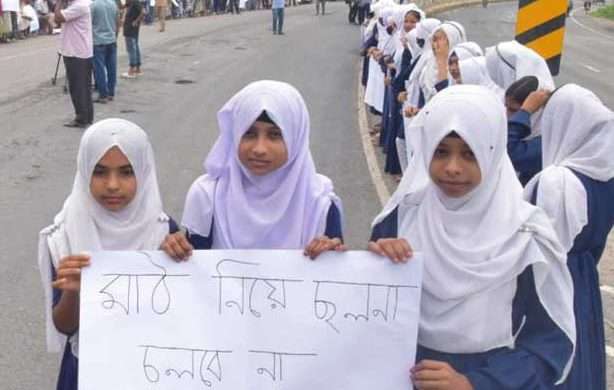 মাঠ নিয়ে ছলনা
চলবে না